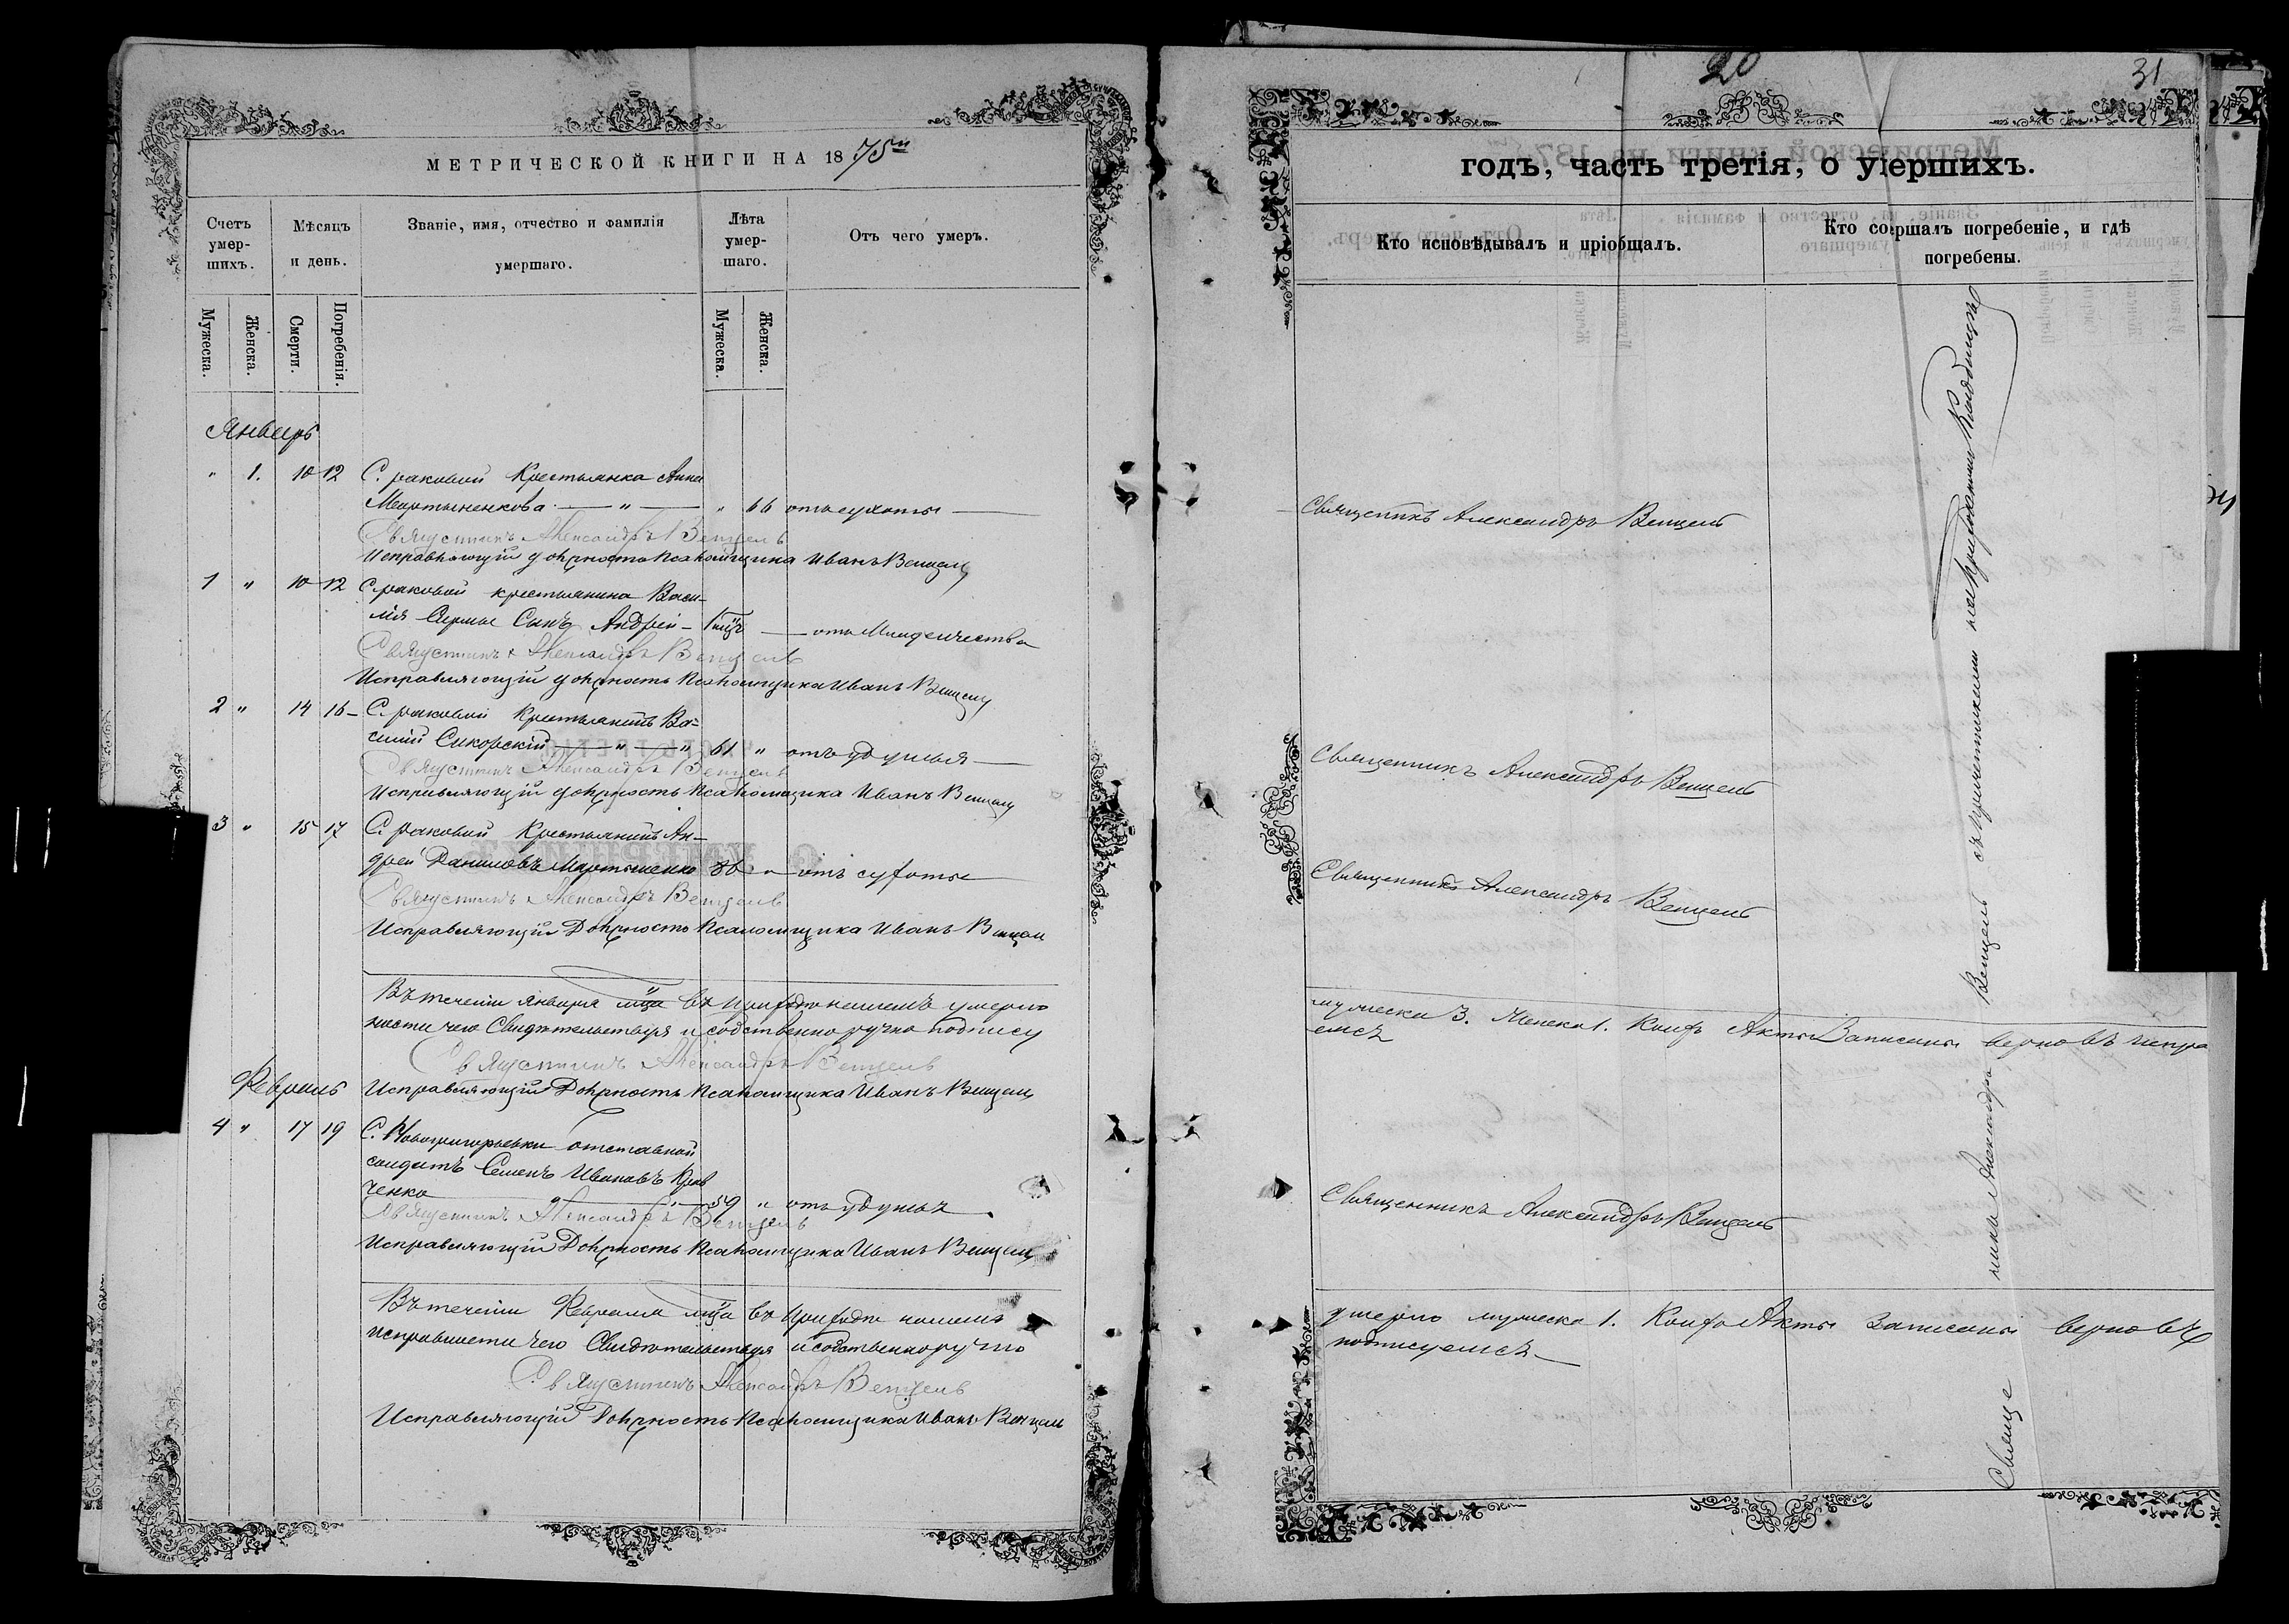 МЕТРИЧЕСКОЙ КНИГИ НА 1875й
Счетъ умер-шихъ.
Мѣсяцъ и день.
Званіе, имя, отчество и фамилія умершаго.
Лѣта умер-шаго.
Отъ чего умеръ.
Мужеска.
Женска.
Смерти.
Погребенія.
Мужеска.
Женска.
Январь
" 1. 10 12 С. Раковой Крестьянка Анна
Мартыненкова " " 66 отъ сухоты
Священникъ Александръ Венцель
Исправляющій должность псаломщика Иванъ Венцель
1 " 10 12 С. Раковой крестьянина Васи-
лія Сынъ Андрей - отъ Младенчества
Священникъ Александръ Венцель
Исправляющій должность псаломщика Иванъ Венцель
2 " 14 16 С. Раковой Крестьянинъ Ва-
силій Сикорскій " " 61 " отъ удушья
Священникъ Александръ Венцель
Исправляющій должность псаломщика Иванъ Венцель
3 " 15 17 С. Раковой Крестьянинъ Ан-
дрей Даниловъ Мартыненко " отъ сухоты
Священникъ Александръ Венцель
Исправляющій Должность Псаломщика Иванъ Венцель
Въ теченіи Января м-ца въ приходѣ нашемъ умерло
ности чего Свидѣтельствуя и собственноручно подпису
Священникъ Александръ Венцель
Февраль Исправляющій Должность псаломщика Иванъ Венцель
4 " 17 19 С. Новогригорьевки отставной
солдатъ Семенъ Ивановъ Крав
ченко " " 59 " отъ удушья
Священникъ Александръ Венцель
Исправляющій Должность псаломщика Иванъ Венцель
Въ теченіи Февраля м-ца въ приходѣ нашемъ
исправности чего Свидѣтельствуя и собственноручно
Священникъ Александръ Венцель
Исправляющій Должность Псаломщика Иванъ Венцель
20
31
годъ, часть третія, о умершихъ.
Кто исповѣдывалъ и пріобщалъ.
Кто совершалъ погребеніе, и гдѣ погребены.
Священникъ Александръ Венцель
Священникъ Александръ Венцель
Священникъ Александръ Венцель
мужеска 3. Женска 1. Акты Записаны верно въ испра
емся
Священникъ Александръ Венцель
умерло мужеска 1. Акты Записаны верно въ
подписуемся
Священникъ Александръ Венцель съ причетниками на приходскомъ кладбищѣ